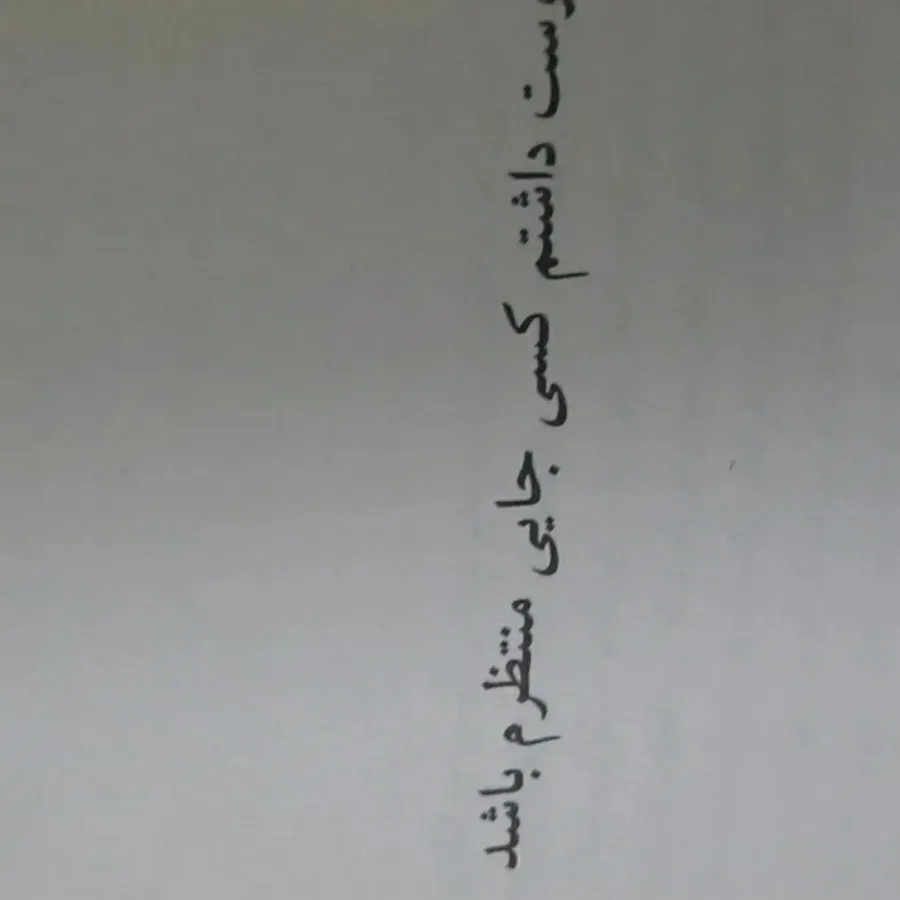 وست داشتم کسی جایی منتظرم باشد